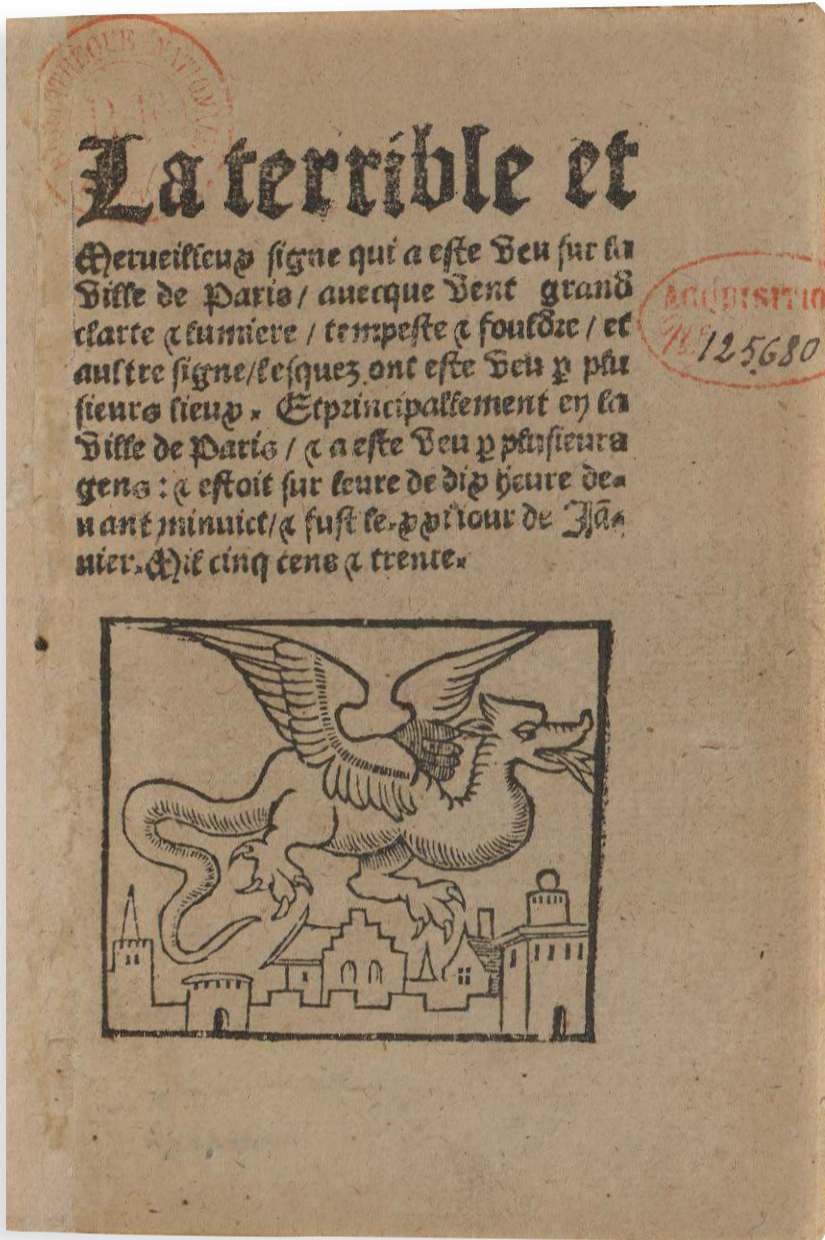 BIBLIOTHEQUE NATIONALE
La terrible et
Merueilleux signe qui a este veu sur la
ville de Paris / auecque vent grand
clarte ⁊ lumiere / tempeste ⁊ fouldre / et
aultre signe/lesquez ont este veu ꝑ plu
sieurs lieux. Et principallement en la
ville de Paris / ⁊ a este veu ꝑ plusieurs
gens : ⁊ estoit sur leure de dix heure de-
uant minuict/⁊ fust le.xxi iour de Jā-
uier.Mil cinq cens ⁊ trente.
ACQUISITIO
125680